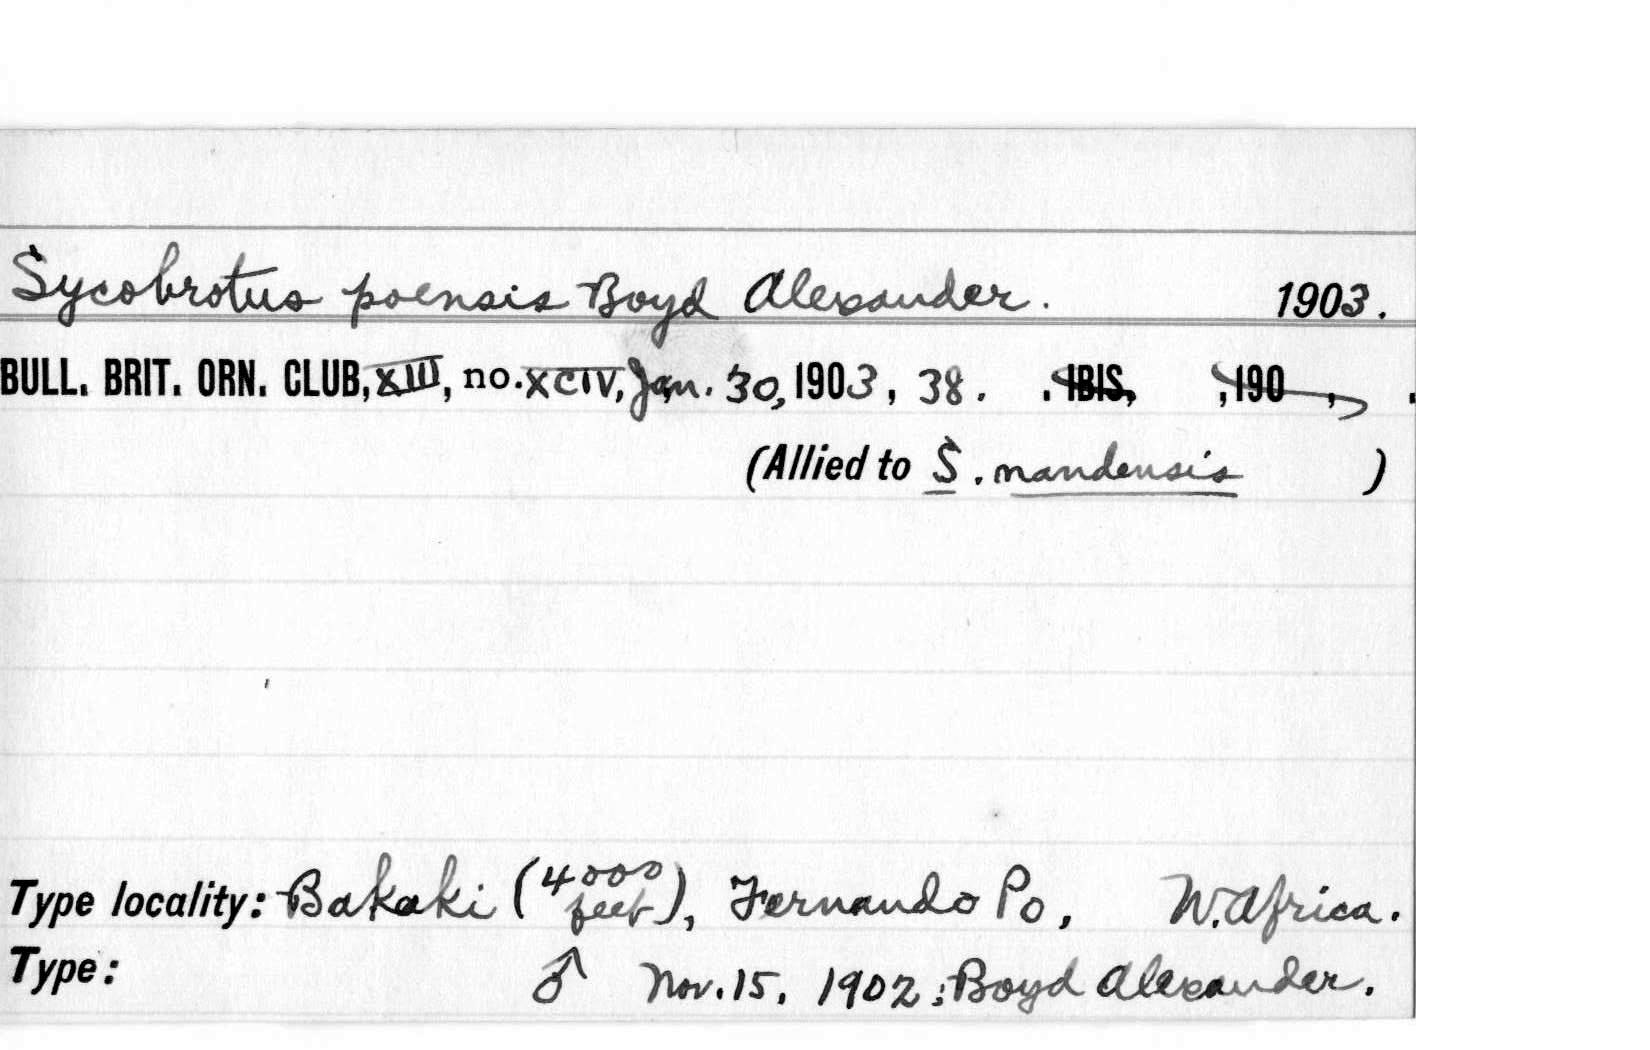 Sycobrotus poensis Boyd Alexander. 1903.
BULL. BRIT. ORN. CLUB, XIII, no. XCIV, Jan. 30, 1903, 38. . IBIS, , 190 , .
(Allied to S. nandensis )
Type locality: Bakaki (4000 feet), Fernando Po, W. Africa.
Type: ♂ Nov. 15, 1902; Boyd Alexander.